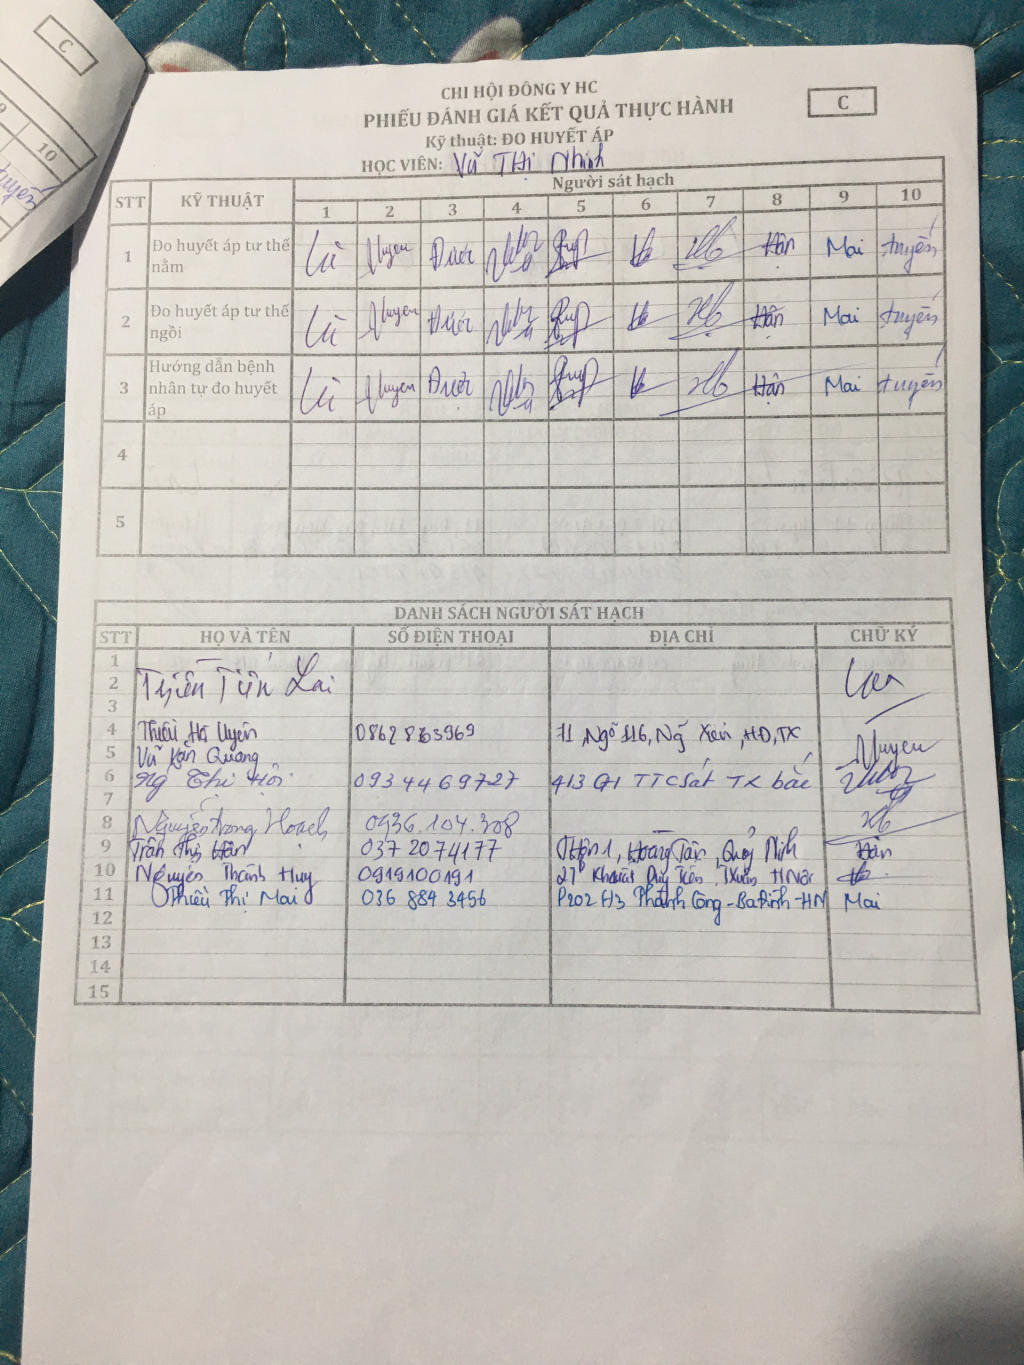 C
10
C
CHI HỘI ĐÔNG Y HC
PHIẾU ĐÁNH GIÁ KẾT QUẢ THỰC HÀNH
Kỹ thuật: ĐO HUYẾT ÁP
HỌC VIÊN: Vũ Thị Nhinh
STT KỸ THUẬT Người sát hạch
1 2 3 4 5 6 7 8 9 10
1 Đo huyết áp tư thế nằm Uyen Được Hân Mai tuyến
2 Đo huyết áp tư thế ngồi Uyen Được Hân Mai tuyến
3 Hướng dẫn bệnh nhân tự đo huyết áp Uyen Được Hân Mai tuyến
4
5
DANH SÁCH NGƯỜI SÁT HẠCH
STT HỌ VÀ TÊN SỐ ĐIỆN THOẠI ĐỊA CHỈ CHỮ KÝ
1
2 Lai
3
4 Thiều Hà Uyên 71, Ngõ 116, HĐ, TX Uyen
5 Vũ Quang
6 Ng Thị 0934469727 413 TX bắc
7
8 Nguyễn trong Hoach 0936.104.308
9 Trần Thị Hân 0372074177 Thôn 1, Hoàng Tân, Quảng Ninh Hân
10 Nguyễn Thành Huy 0919100191 27 Duy Tiến
11 Thiều Thị Mai 036 884 3456 P202 H3 Thành Công - Ba Đình - HN Mai
12
13
14
15